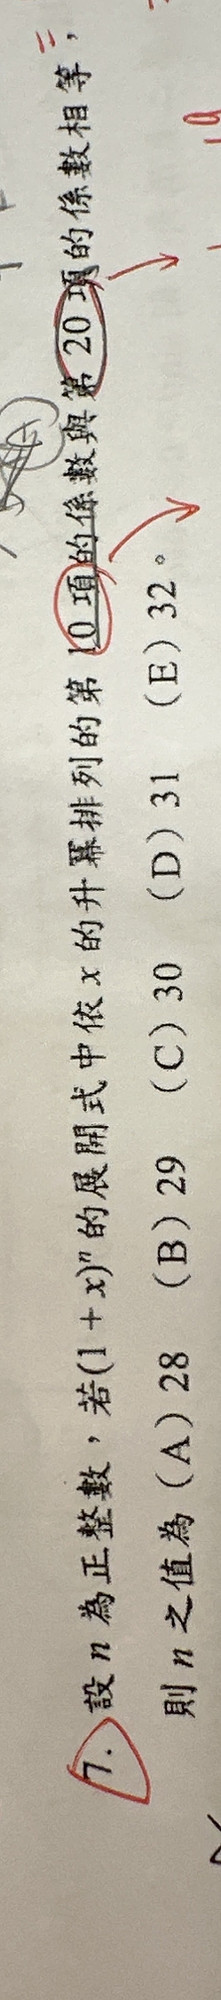 7. 設 n 為正整數，若(1 + x)ⁿ的展開式中依 x 的升冪排列的第 10 項的係數與第 20 項的係數相等，
則 n 之值為（A）28 （B）29 （C）30 （D）31 （E）32。